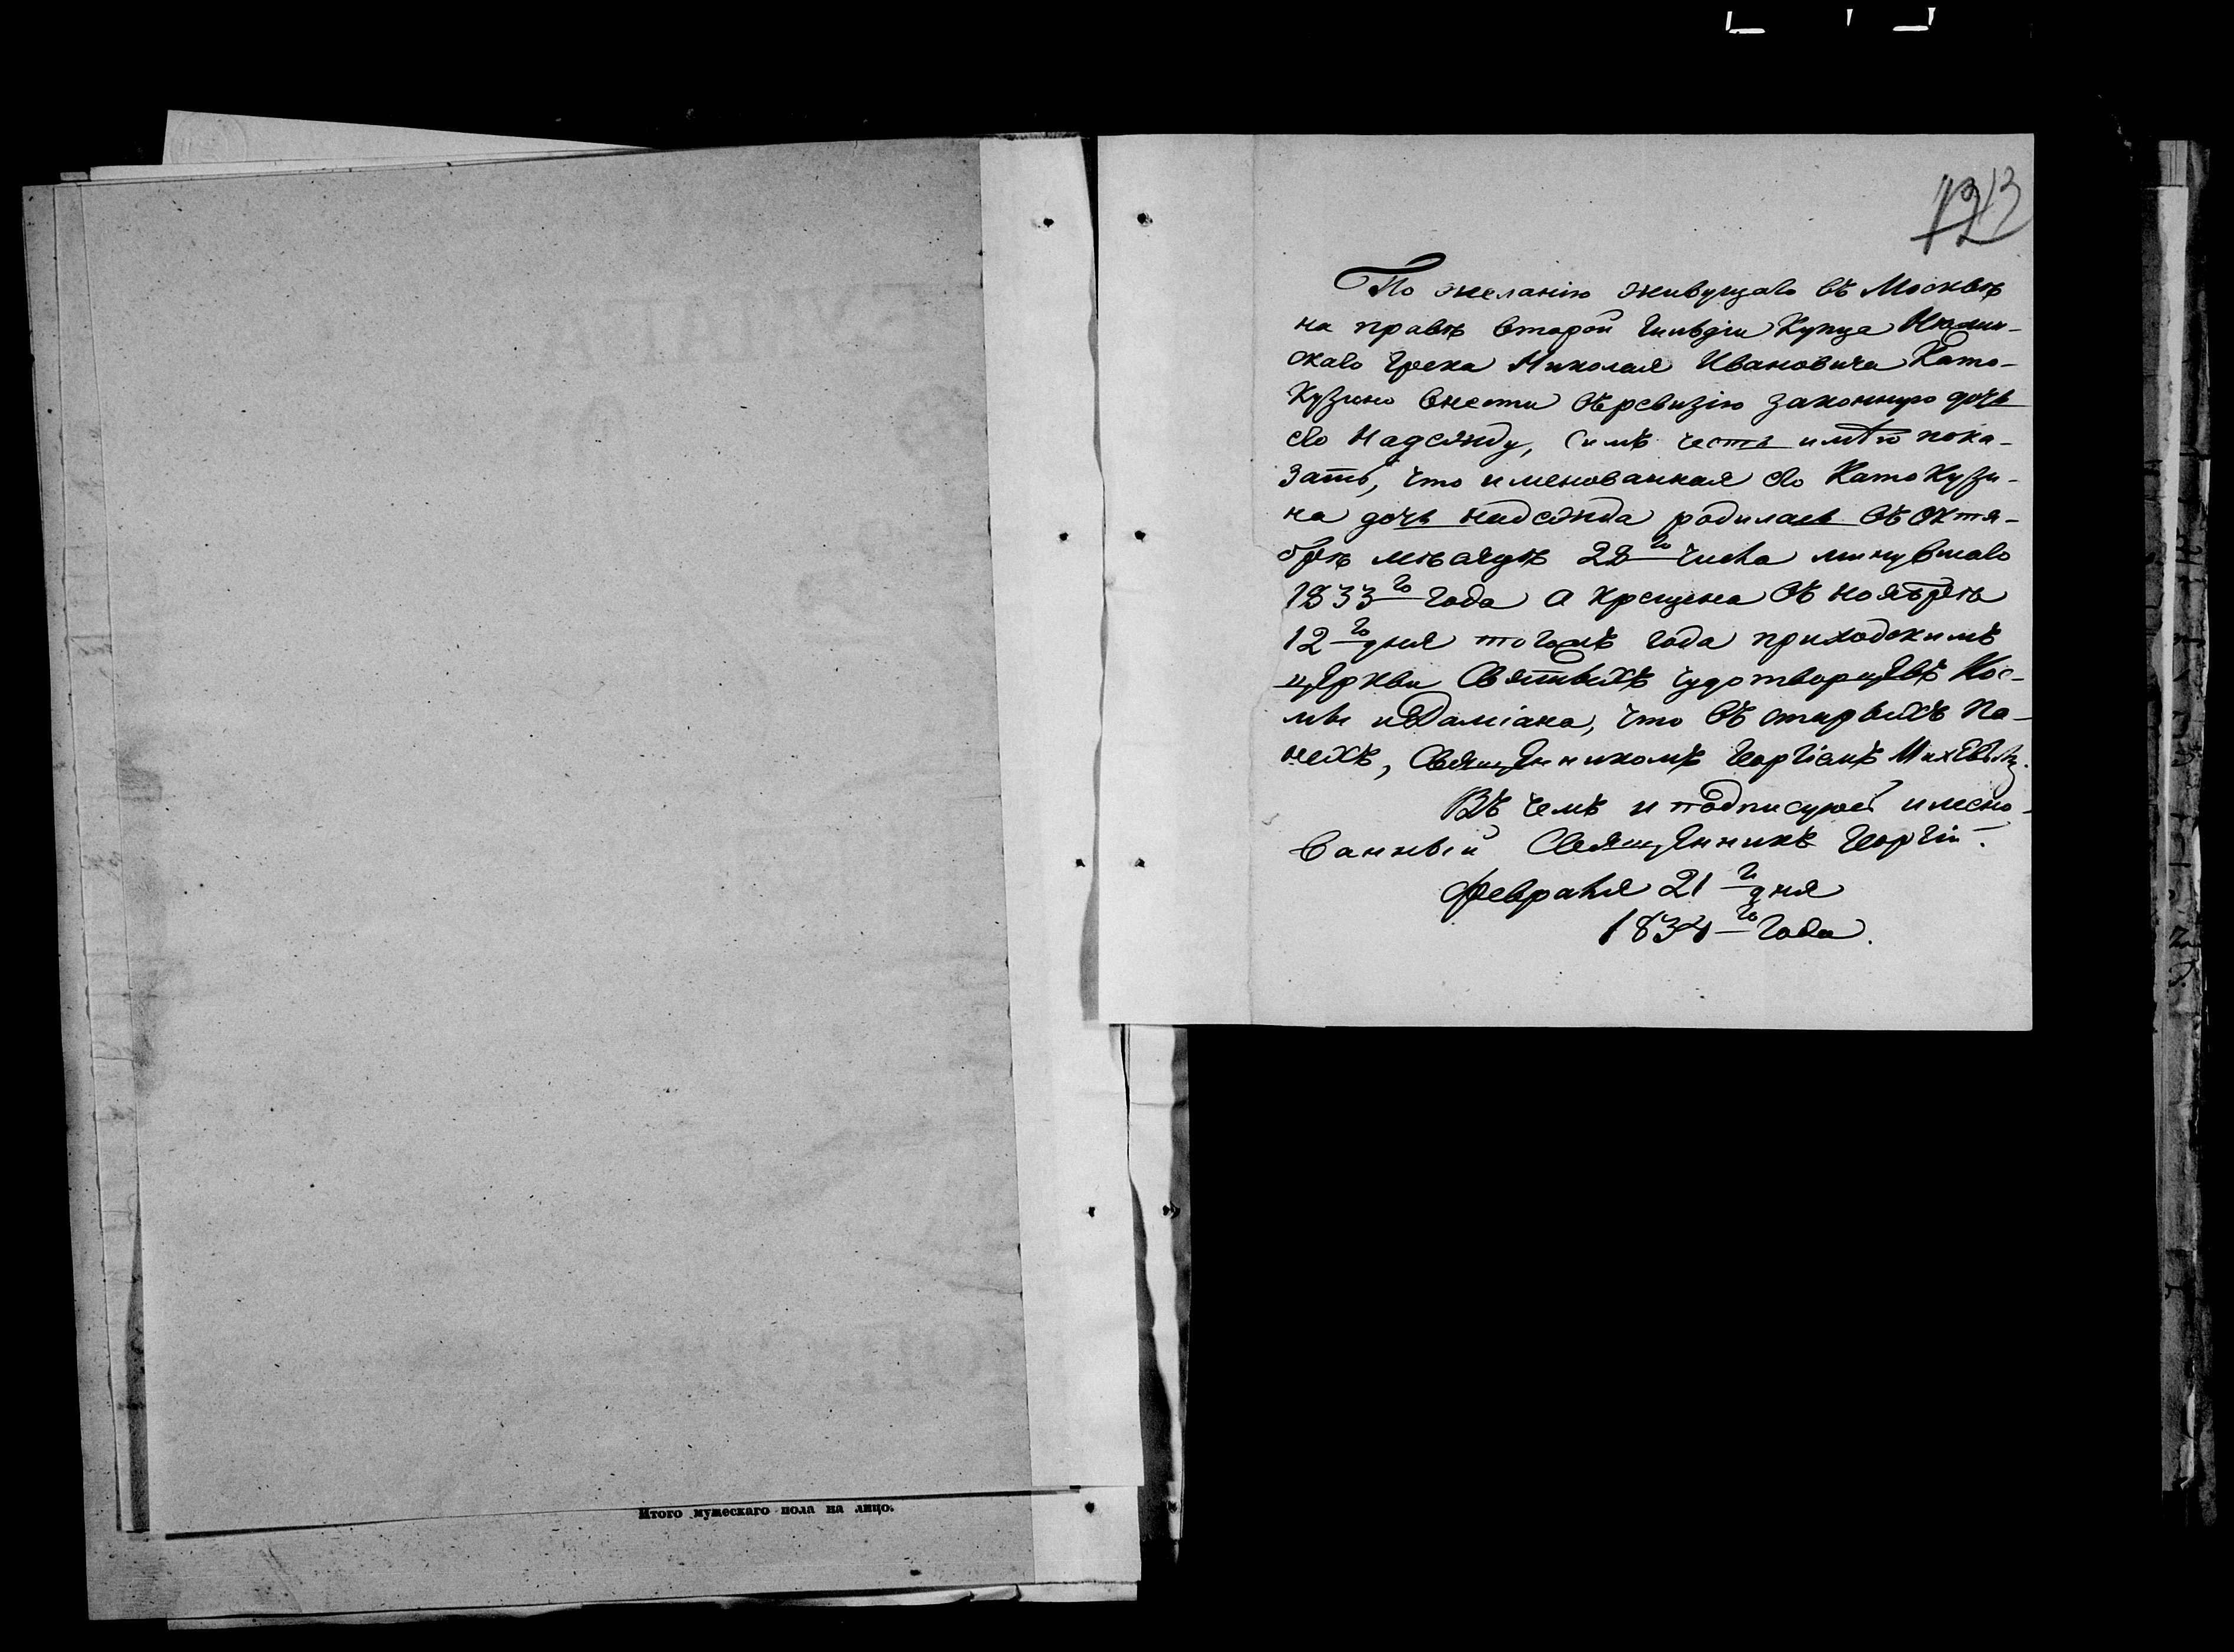 123
По желанію живущаго въ Москвѣ
на правѣ второй гильдіи Купца Нѣжин-
скаго Грека Николая Ивановича Като-
Кузино внести въ ревизію законную дочь
его Надежду, симъ честь имѣю пока-
зать, что именованная его КатоКузи-
на дочь надежда родилась въ октя-
брѣ мѣсяцѣ 22го числа минувшаго
1833го года а крещена въ ноябрѣ
12го дня тогожъ года приходскимъ
церкви Святыхъ чудотворцевъ Кос-
мы и Даміана, что въ старыхъ Па-
нехъ, Священникомъ Георгіемъ
Въ чемъ и подписуюсь имено-
ванный Священникъ Георгій.
февраля 21го дня
1834го года.
Итого мужескаго пола на лицо.